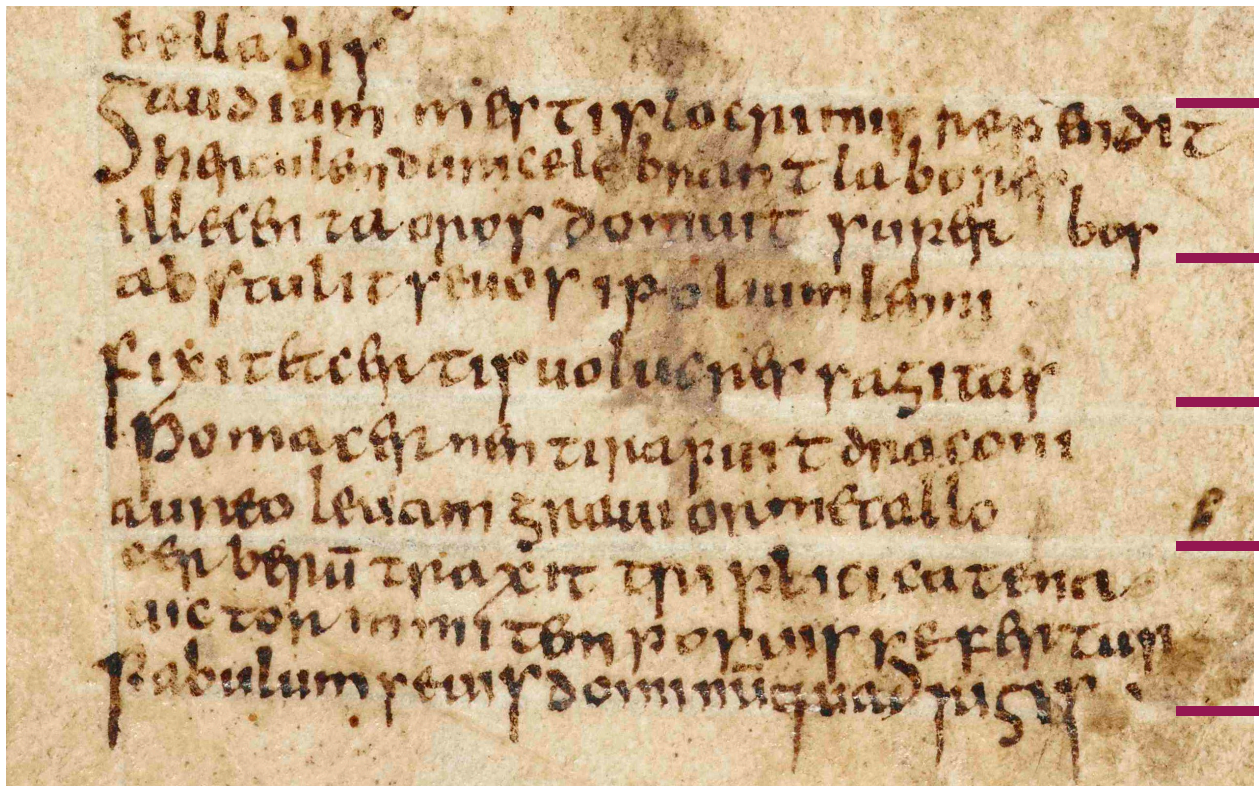 bellabis
gaudium mestis lacrimis rependit
herculem duri celebrant labores
ille centauros domuit super bos
abstulit seuos ipolium leoni
fixit et certis uolucres sagitas
Poma cernenti rapuit draconi
aureo leuam grauior metallo
cerberū traxit triplici catena
uictor inmitem posuis se fertur
pabulum seuis dominū quadrigis